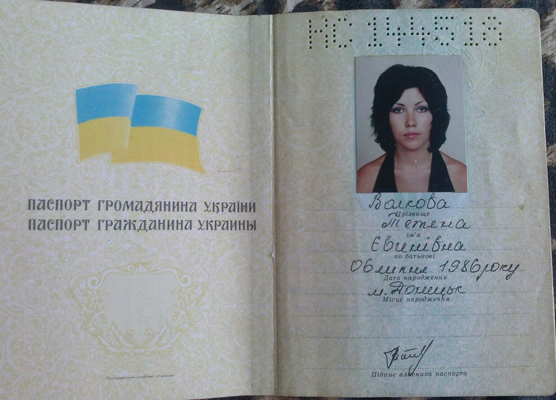 ПАСПОРТ ГРОМАДЯНИНА УКРАЇНИ
ПАСПОРТ ГРАЖДАНИНА УКРАИНЫ
НС 144518
Волкова
Прізвище
Тетяна
Ім'я
Євгенівна
по батькові
06 липня 1986 року
Дата народження
м. Донецьк
Місце народження
Підпис власника паспорта